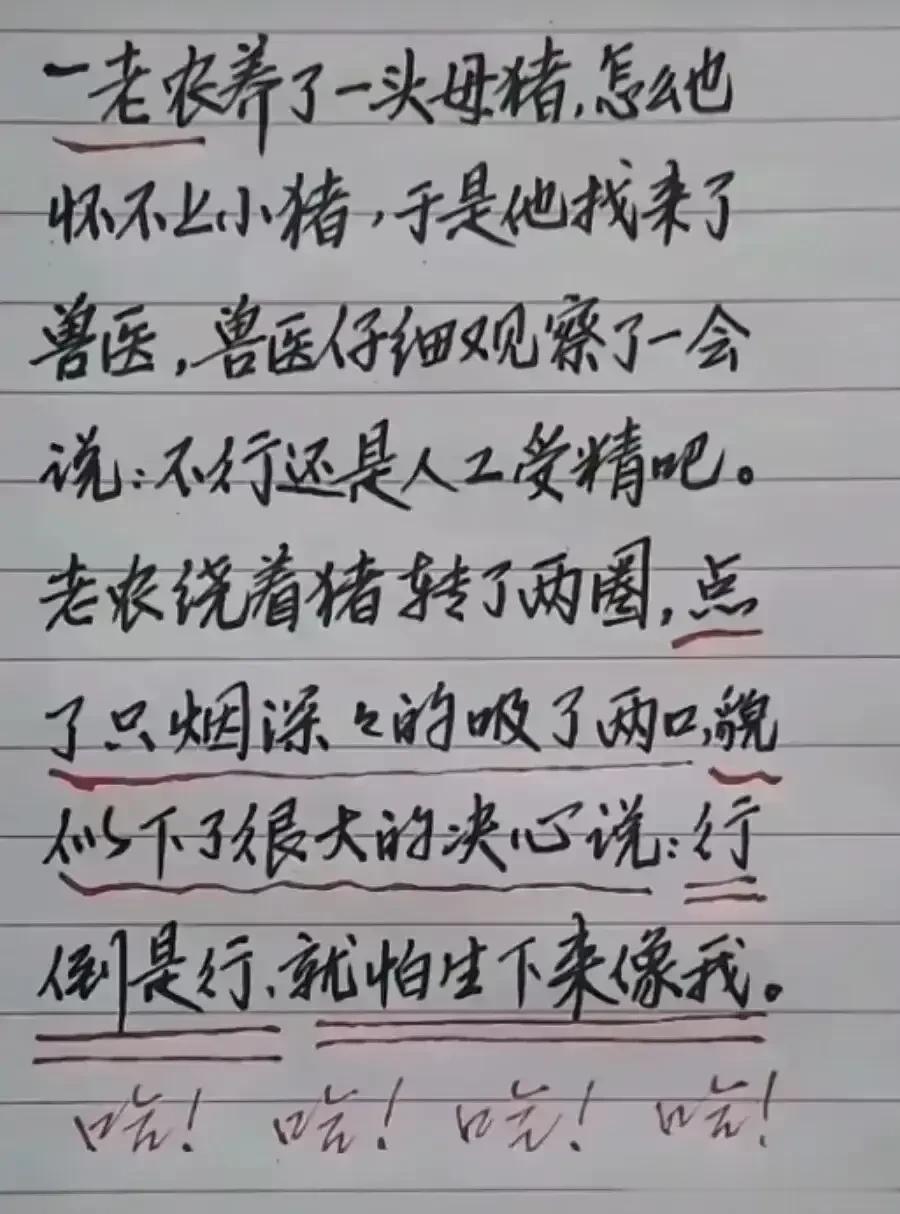 一老农养了一头母猪，怎么也
怀不上小猪，于是他找来了
兽医，兽医仔细观察了一会
说：不行还是人工受精吧。
老农绕着猪转了两圈，点
了只烟深々的吸了两口，貌
似下了很大的决心说：行
倒是行、就怕生下来像我。
哈！哈！哈！哈！